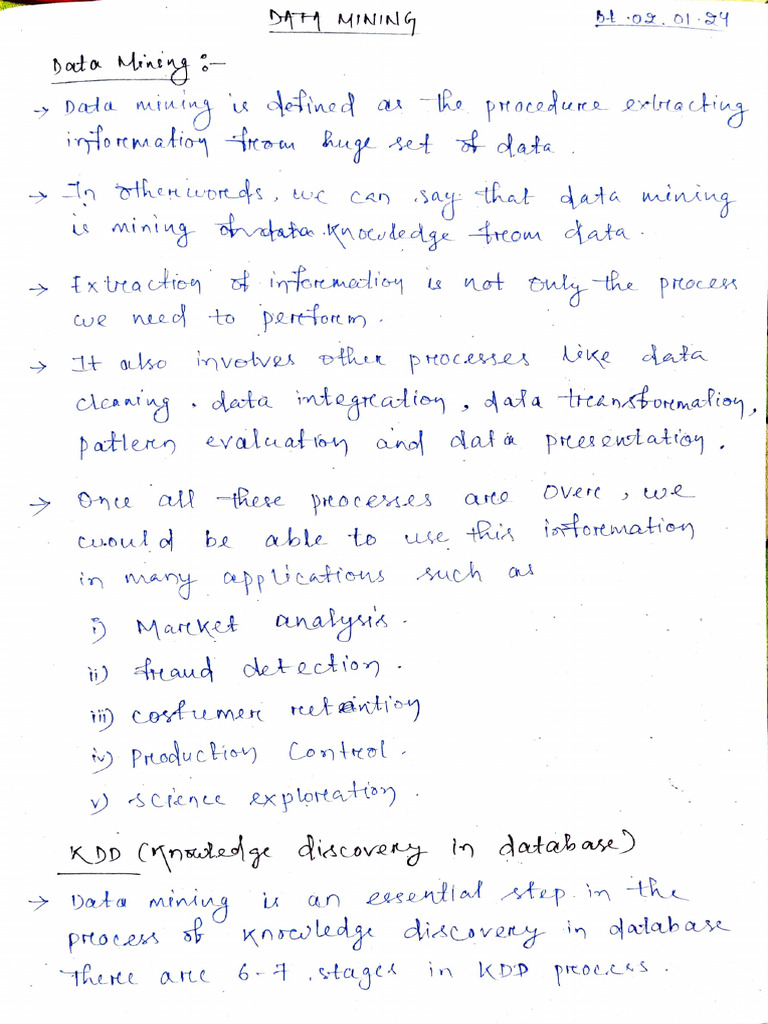 DATA MINING
Dt. 02.01.24
Data Mining :-
→ Data mining is defined as the procedure extracting
information from huge set of data.
→ In otherwords, we can say that data mining
is mining of data knowledge from data.
→ Extraction of information is not only the process
we need to perform.
→ It also involves other processes like data
cleaning, data integration, data transformation,
pattern evaluation and data presentation.
→ Once all these processes are over, we
would be able to use this information
in many applications such as
i) Market analysis.
ii) fraud detection.
iii) costumer retaintion
iv) production control.
v) science exploration.
KDD (Knowledge discovery in database)
→ Data mining is an essential step in the
process of knowledge discovery in database
There are 6-7 stages in KDD process.